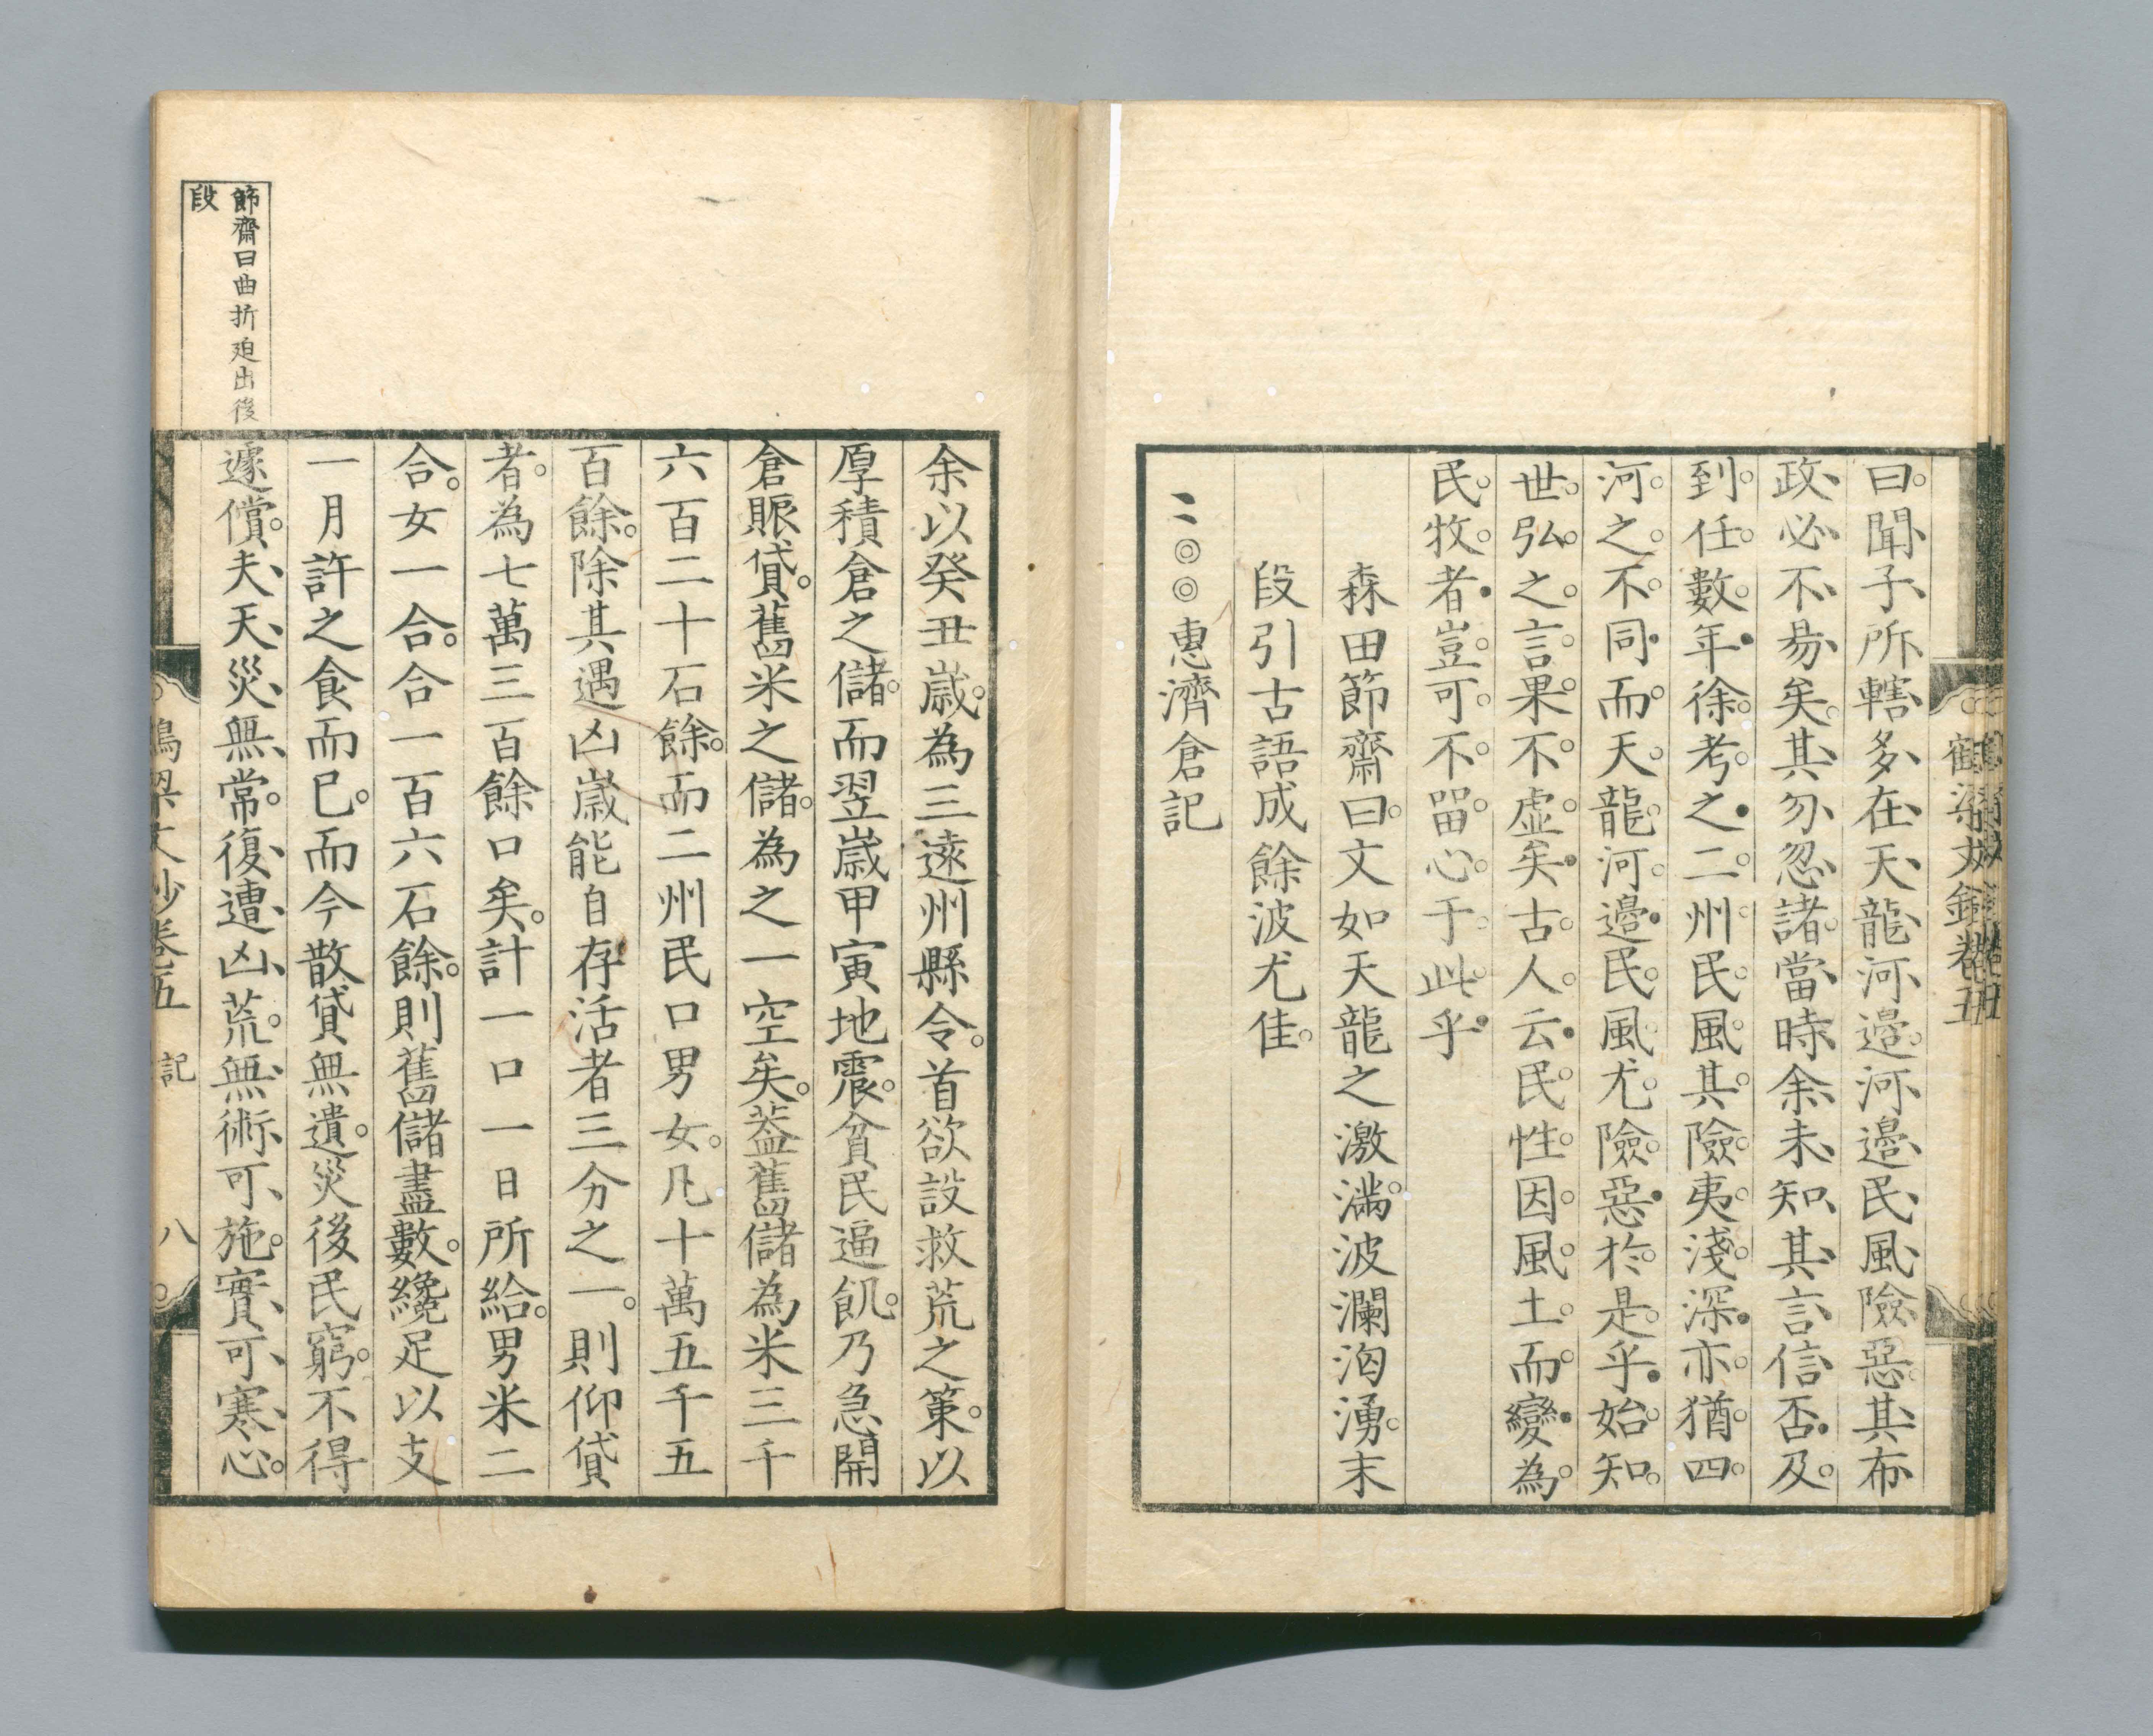 曰聞子所轄多在天龍河邉河邉民風險惡其布
政必不易矣其勿忽諸當時余未知其言信否及
到任數年徐考之二州民風其險夷淺深亦猶四
河之不同而天龍河邉民風尤險惡於是乎始知
世弘之言果不虛矣古人云民性因風土而變為
民牧者豈可不留心于此乎
森田節齋曰文如天龍之激滿波瀾洶湧末
段引古語成餘波尤佳
二◎◎惠濟倉記
余以癸丑歳為三遠州縣令首欲設救荒之策以
厚積倉之儲而翌歳甲寅地震貧民逼飢乃急開
倉賑貸舊米之儲為之一空矣葢舊儲為米三千
六百二十石餘而二州民口男女凡十萬五千五
百餘除其遇凶歳能自存活者三分之一則仰貸
者為七萬三百餘口矣計一口一日所給男米二
合女一合合一百六石餘則舊儲盡數纔足以支
一月許之食而已而今散貸無遺災後民窮不得
遽償夫天災無常復遭凶荒無術可施實可寒心
節齋曰曲折廹出後
段
鶴梁文鈔卷五 記 八